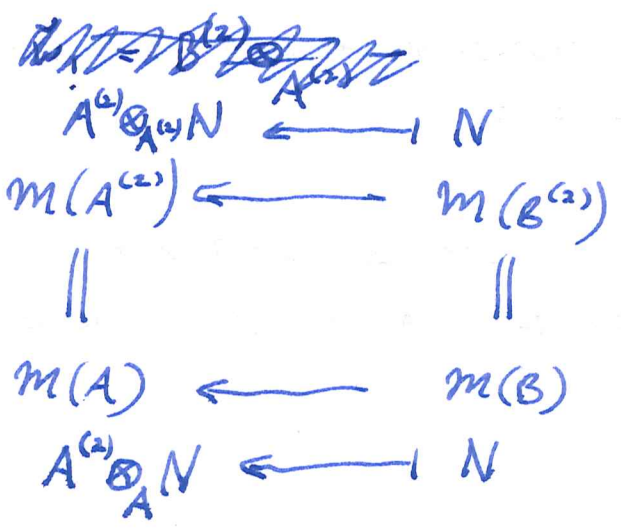 A⁽²⁾⊗_A⁽²⁾ N ↤ N
m(A⁽²⁾) ← m(B⁽²⁾)
|| ||
m(A) ← m(B)
A⁽²⁾⊗_A N ↤ N